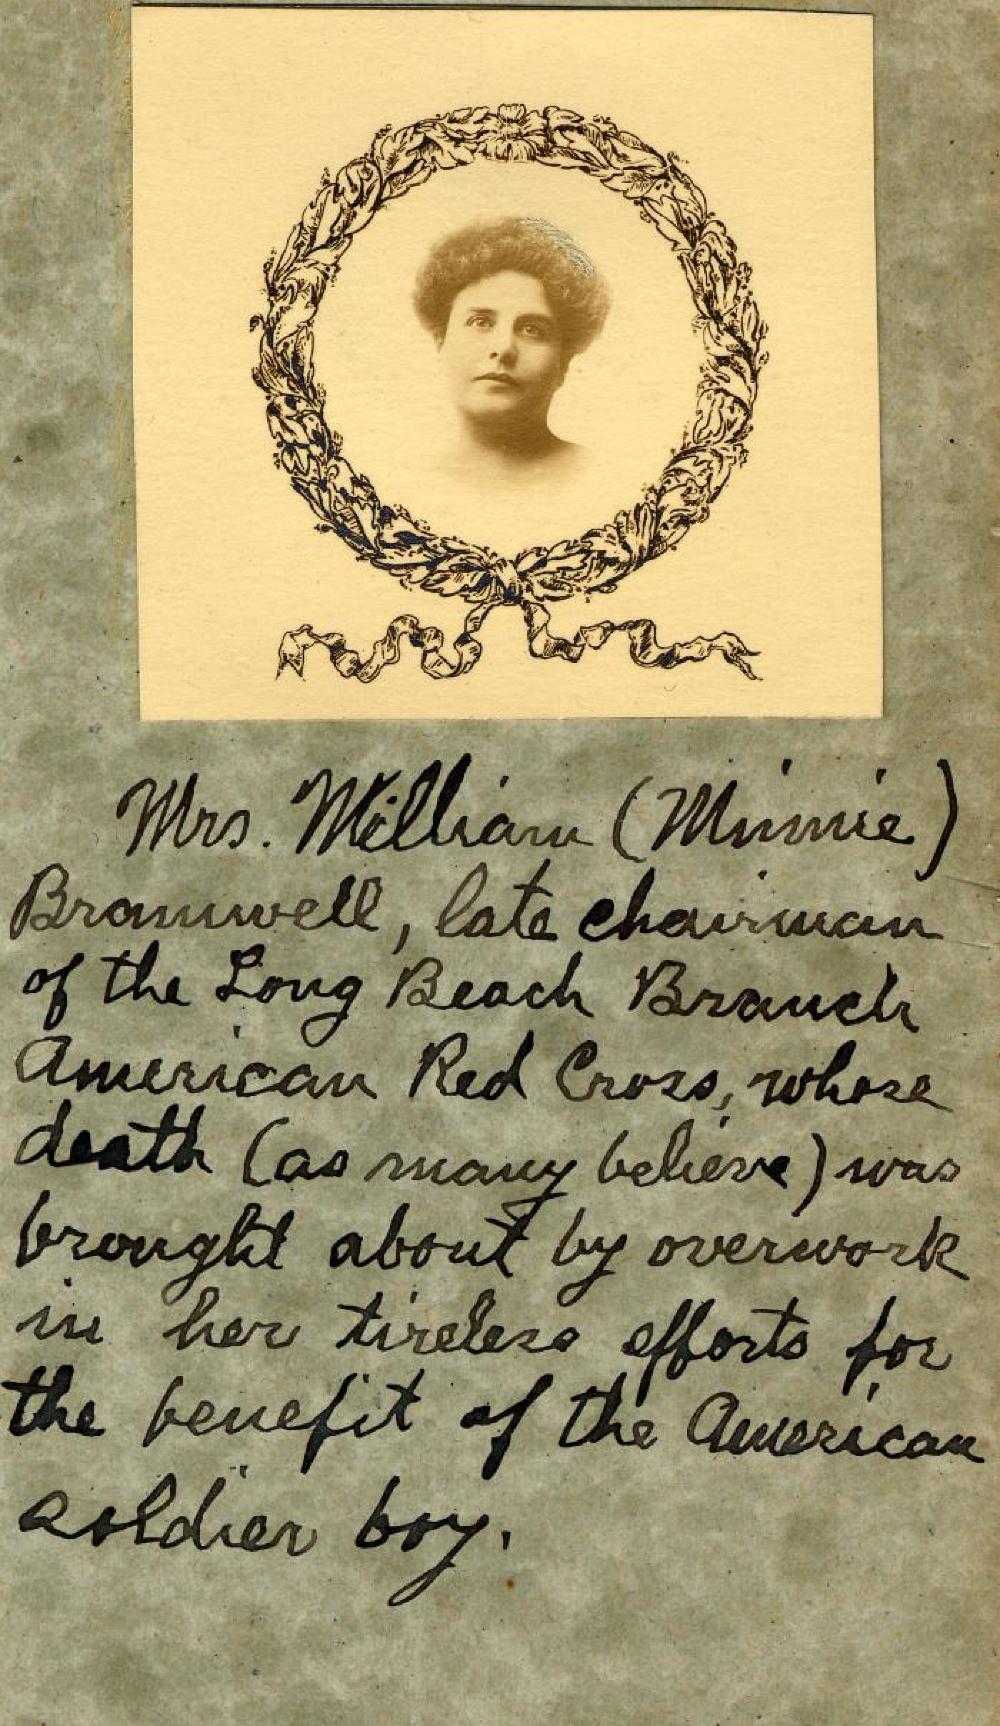 Mrs. William (Minnie)
Bramwell, late chairman
of the Long Beach Branch
American Red Cross, whose
death (as many believe) was
brought about by overwork
in her tireless efforts for
the benefit of the American
soldier boy.